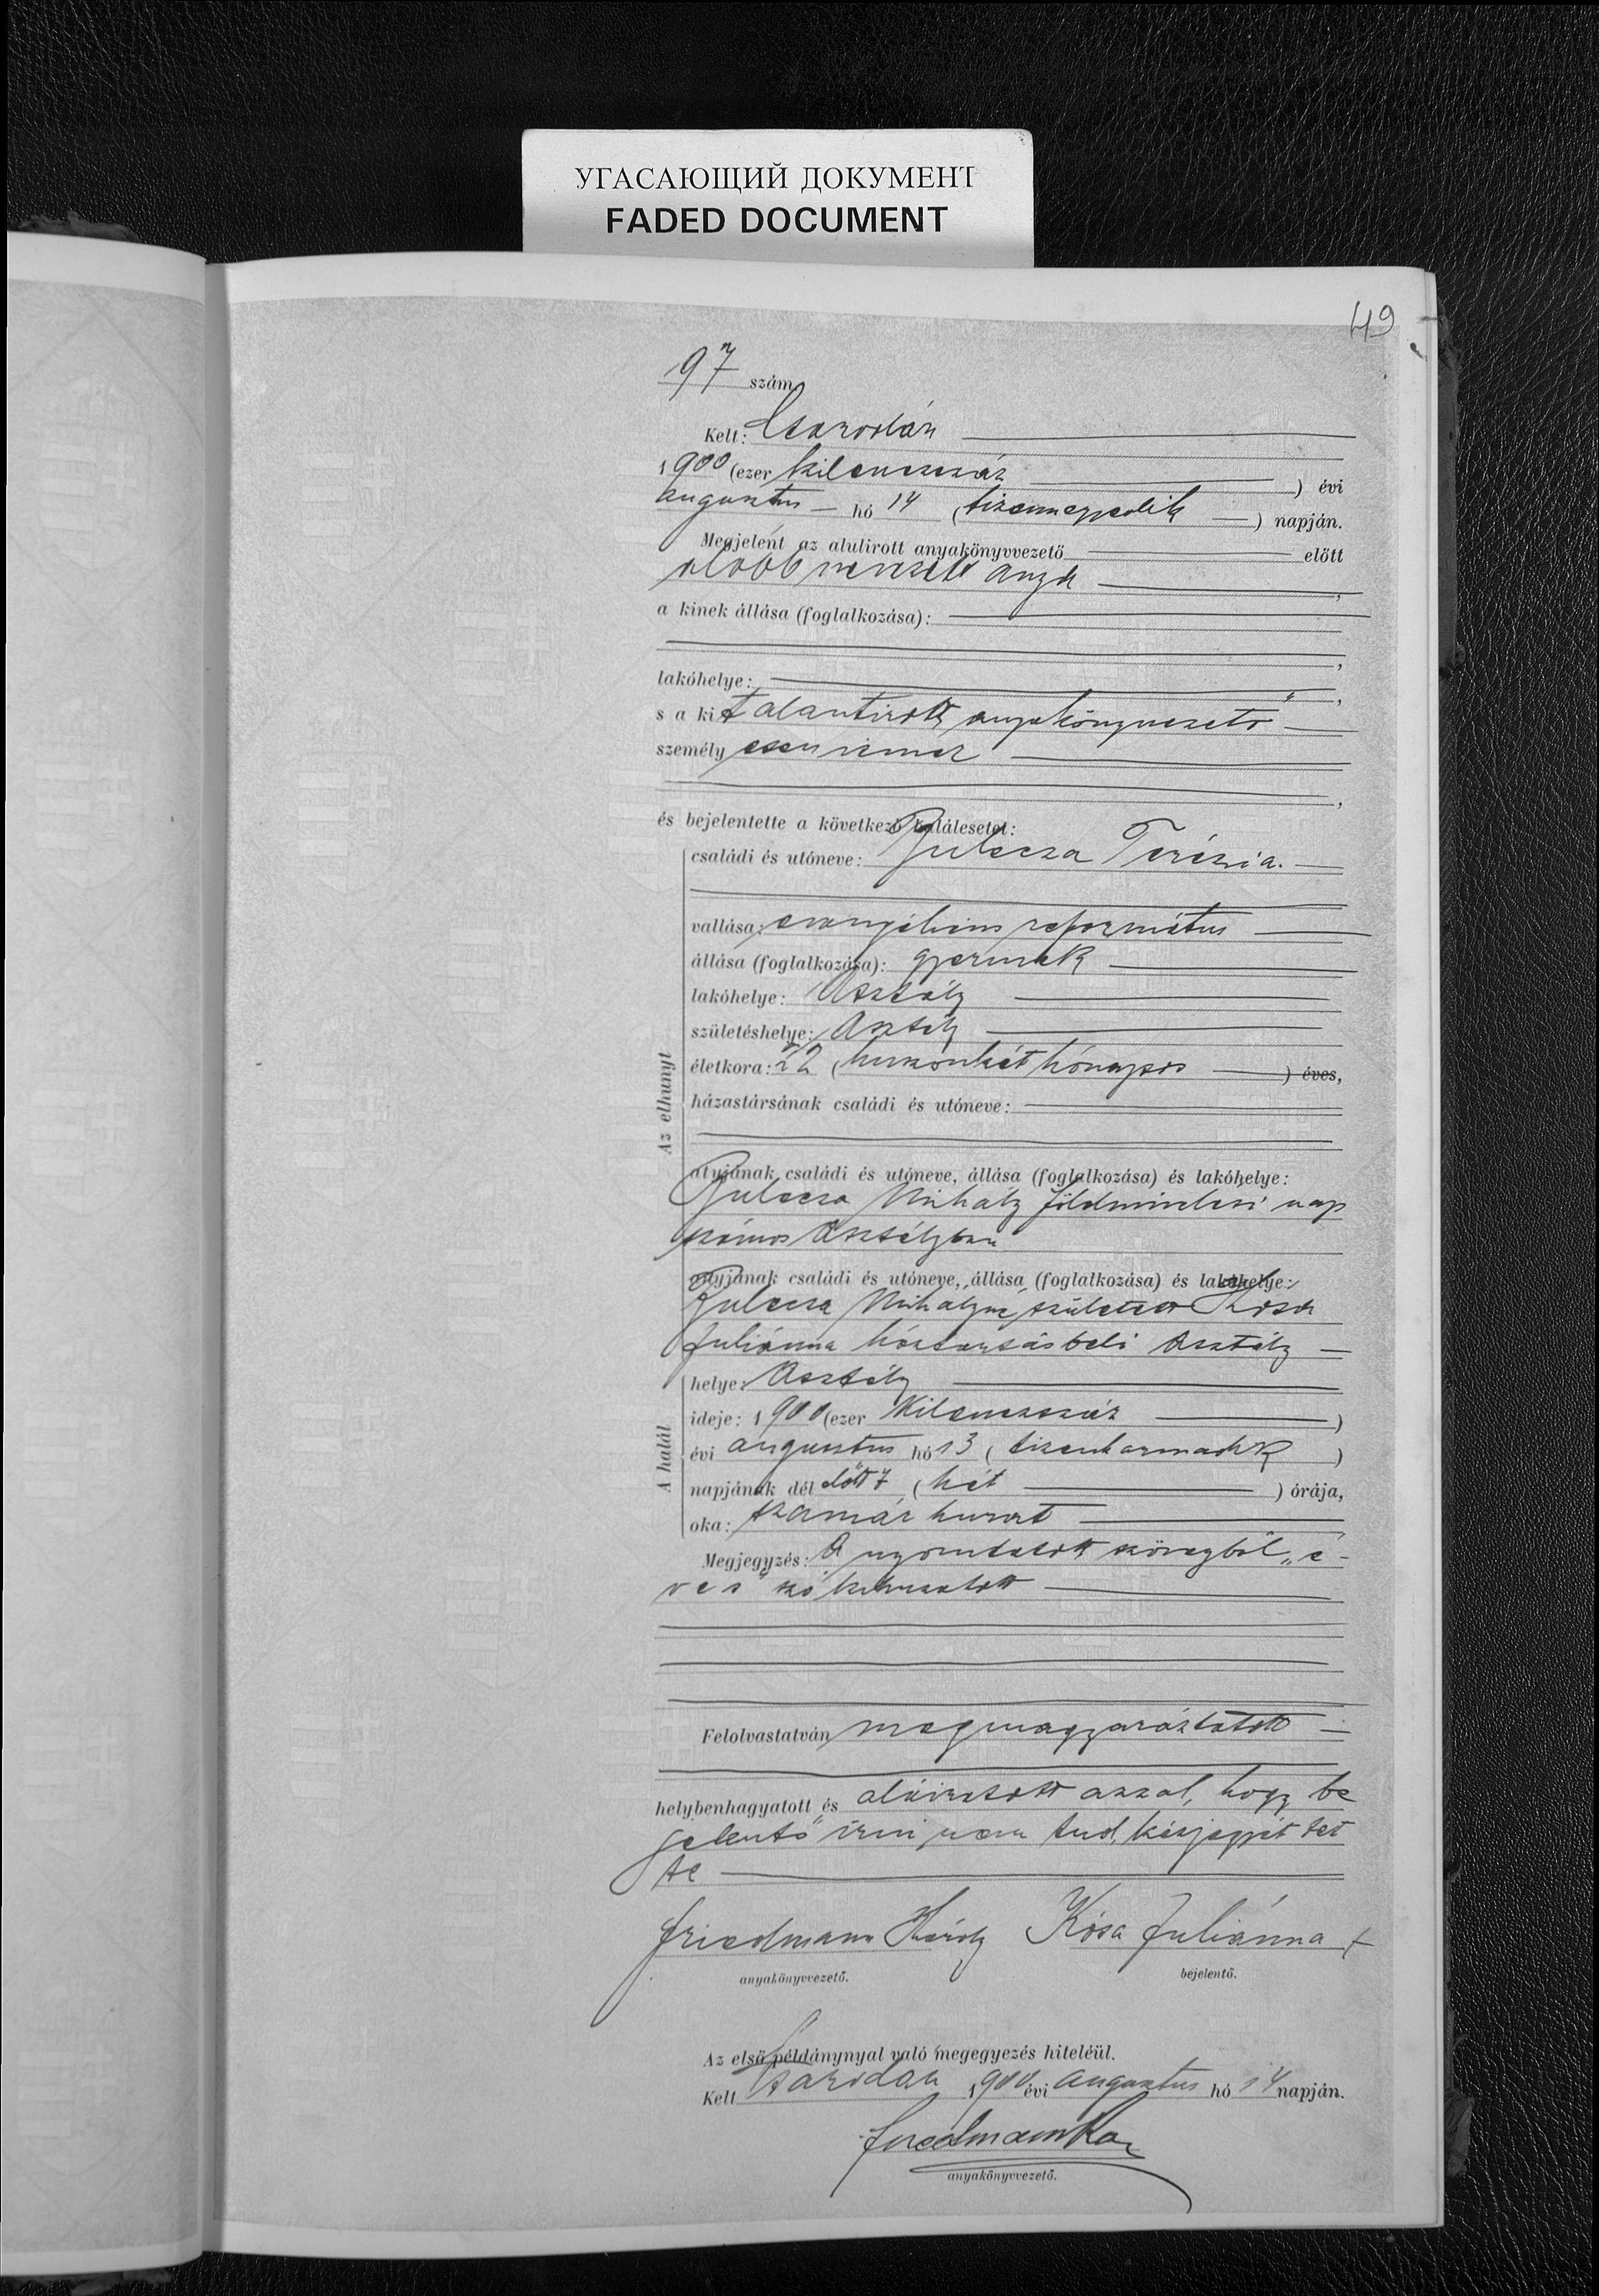 УГАСАЮЩИЙ ДОКУМЕНТ
FADED DOCUMENT
49
97 szám
Kelt: Csarodán
1900 (ezer kilenczszáz ) évi
augusztus hó 14 (tizennegyedik ) napján.
Megjelent az alulirott anyakönyvvezető előtt
alább nevezett anya ,
a kinek állása (foglalkozása):
,
lakóhelye: ,
s a kit alantirott anyakönyvvezető
személyesen ismer
,
és bejelentette a következő halálesetet:
családi és utóneve: Gulacsa Terézia.
vallása: evangélium református
állása (foglalkozása): gyermek
lakóhelye: Asztély
születéshelye: Asztély
életkora: 22 (huszonkét hónapos ) éves,
házastársának családi és utóneve:
Az elhunyt
atyjának családi és utóneve, állása (foglalkozása) és lakóhelye:
Gulacsa Mihály földmívelési nap
számos Asztélyban
anyjának családi és utóneve, állása (foglalkozása) és lakóhelye:
Gulacsa Mihályné született Kósa
Juliánna háztartásbeli Asztély
helye: Asztély
ideje: 1900 (ezer kilenczszáz )
évi augusztus hó 13 (tizenharmadik )
napjának dél előtt 7 (hét ) órája,
oka: szamár hurut
A halál
Megjegyzés: A nyomtatott szövegből „é-
ves" szó kihuzatott
Felolvastatván megmagyaráztatott
helybenhagyatott és aláiratott azzal, hogy be
jelentő irni nem tud, kézjegyét tet
te
Friedmann Károly Kósa Juliánna +
anyakönyvvezető. bejelentő.
Az első példánynyal való megegyezés hiteléül.
Kelt Csarodán 1900 évi augusztus hó 14 napján.
Friedmann Kár
anyakönyvvezető.